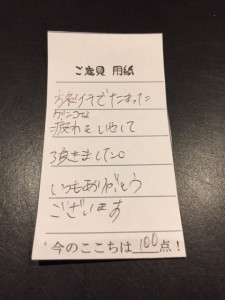 ご意見 用紙
旅行でたまった
疲れをいやして
頂きました。
いつもありがとう
ございます
今のここちは 100 点!